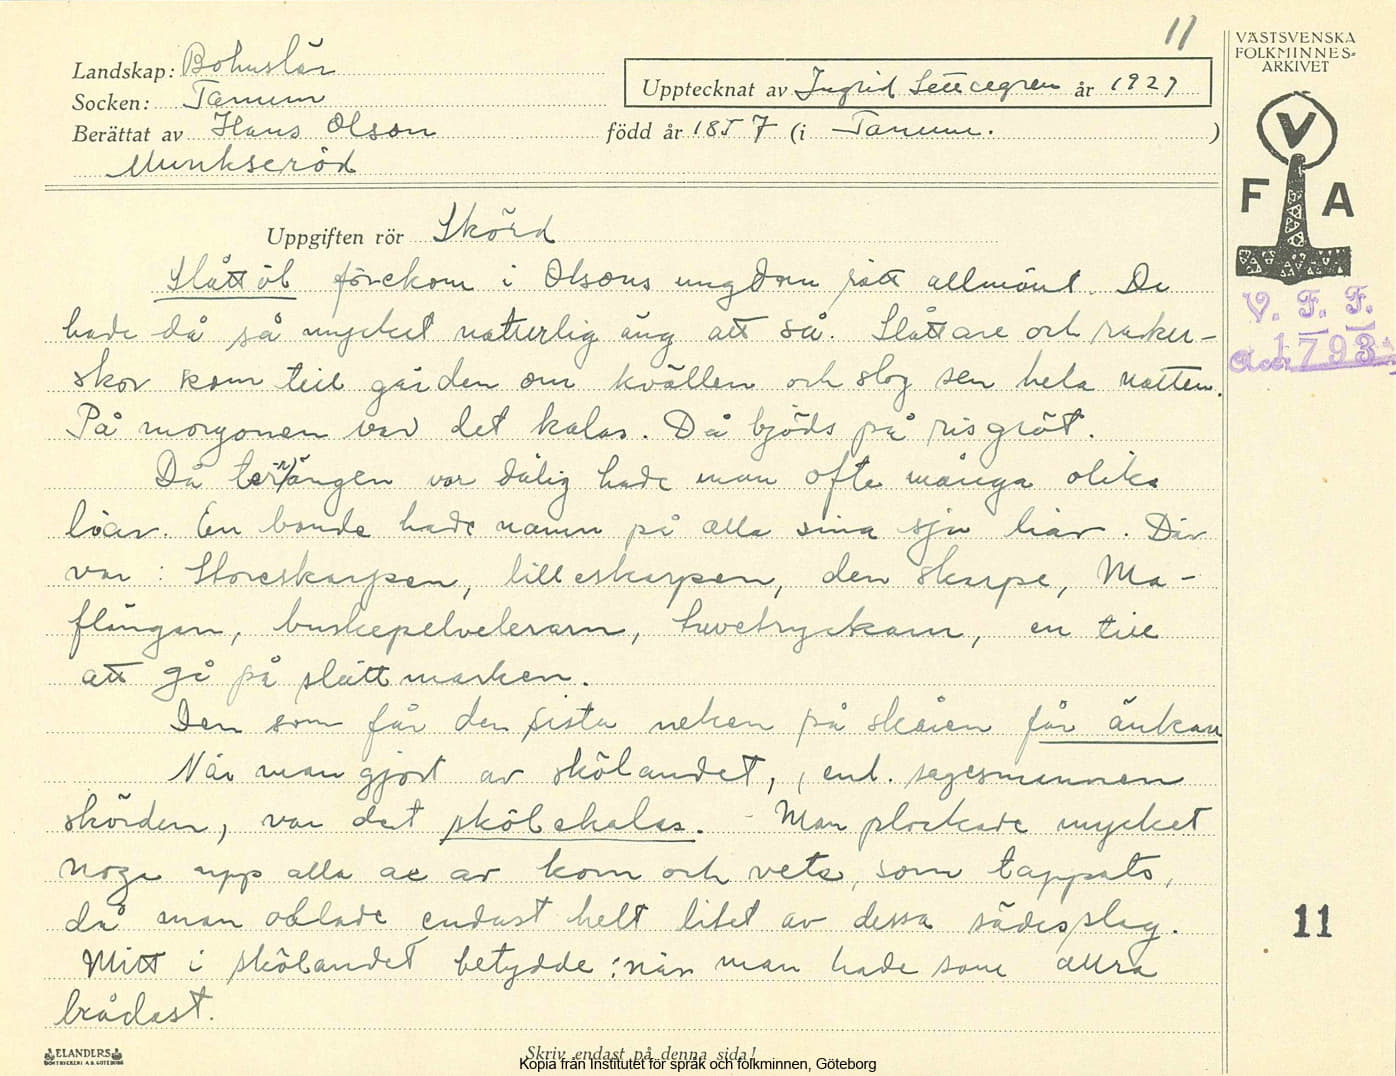 11
VÄSTSVENSKA
FOLKMINNES-
ARKIVET
Landskap: Bohuslän
Upptecknat av Ingrid år 1927
Socken: Tanum
Berättat av Hans Olson född år 1857 (i Tanum. )
Munkseröd
V
F A
Uppgiften rör Skörd
Slåttöl förekom i Olsons ungdom rätt allmänt. De
hade då så mycket naturlig äng att slå. Slåttare och raker-
skor kom till gården om kvällen och slog sen hela natten.
På morgonen var det kalas. Då bjöds på risgröt.
Då terrängen var dålig hade man ofta många olika
liar. En bonde hade namn på alla sina sju liar. Där
var: Storeskarpen, lilleskarpen, den skarpe, Ma-
flängan, buskepelveleram, tuvetryckam, en till
att gå på slåttmarken.
Den som får den sista neken på skåien får änkan
När man gjort av skölandet, enl. sagesmannen
skörden, var det skölekalas. Man plockade mycket
noga upp alla ax av korn och vete, som tappats,
då man odlade endast helt litet av dessa sädesslag.
Mitt i skölandet betydde: när man hade som allra
brådast.
V. F. F.
Acc. 1793
11
ELANDERS
BOKTRYCKERI A.B. GÖTEBORG
Skriv endast på denna sida!
Kopia från Institutet för språk och folkminnen, Göteborg